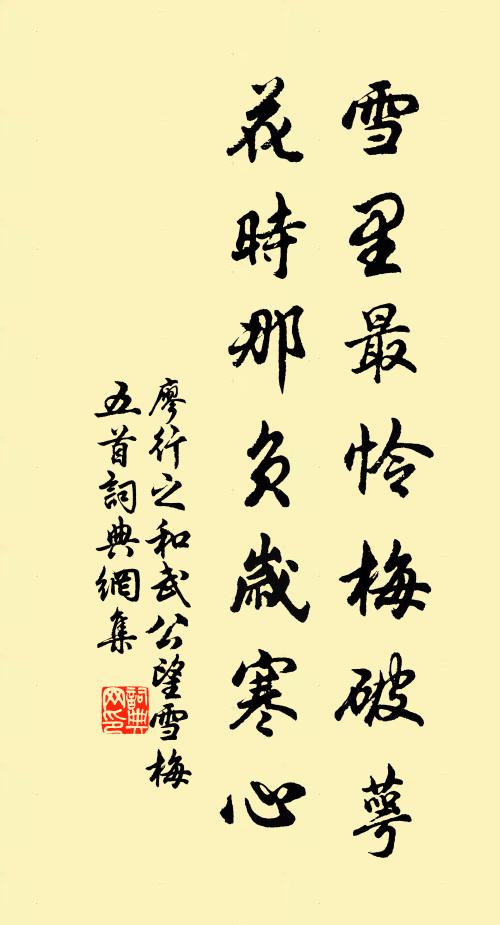 雪里最怜梅破萼
花時那負歲寒心
廖行之和武公望雪梅
五首詞典網集
詞典
网印